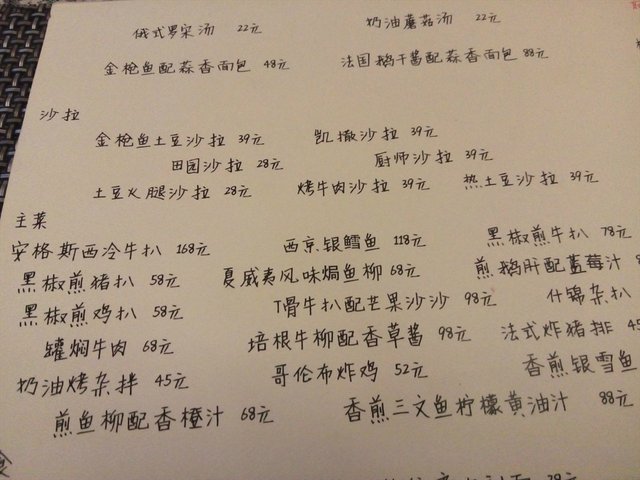 俄式罗宋汤 22元 奶油蘑菇汤 22元
金枪鱼配蒜香面包 48元 法国鹅干酱配蒜香面包 88元
沙拉
金枪鱼土豆沙拉 39元 凯撒沙拉 39元
田园沙拉 28元 厨师沙拉 39元
土豆火腿沙拉 28元 烤牛肉沙拉 39元 热土豆沙拉 39元
主菜
安格斯西冷牛扒 168元 西京银鳕鱼 118元 黑椒煎牛扒 78元
黑椒煎猪扒 58元 夏威夷风味焗鱼柳 68元 煎鹅肝配蓝莓汁
黑椒煎鸡扒 58元 T骨牛扒配芒果沙沙 98元 什锦杂扒
罐焖牛肉 68元 培根牛柳配香草酱 98元 法式炸猪排 45
奶油烤杂拌 45元 哥伦布炸鸡 52元 香煎银雪鱼
煎鱼柳配香橙汁 68元 香煎三文鱼柠檬黄油汁 88元